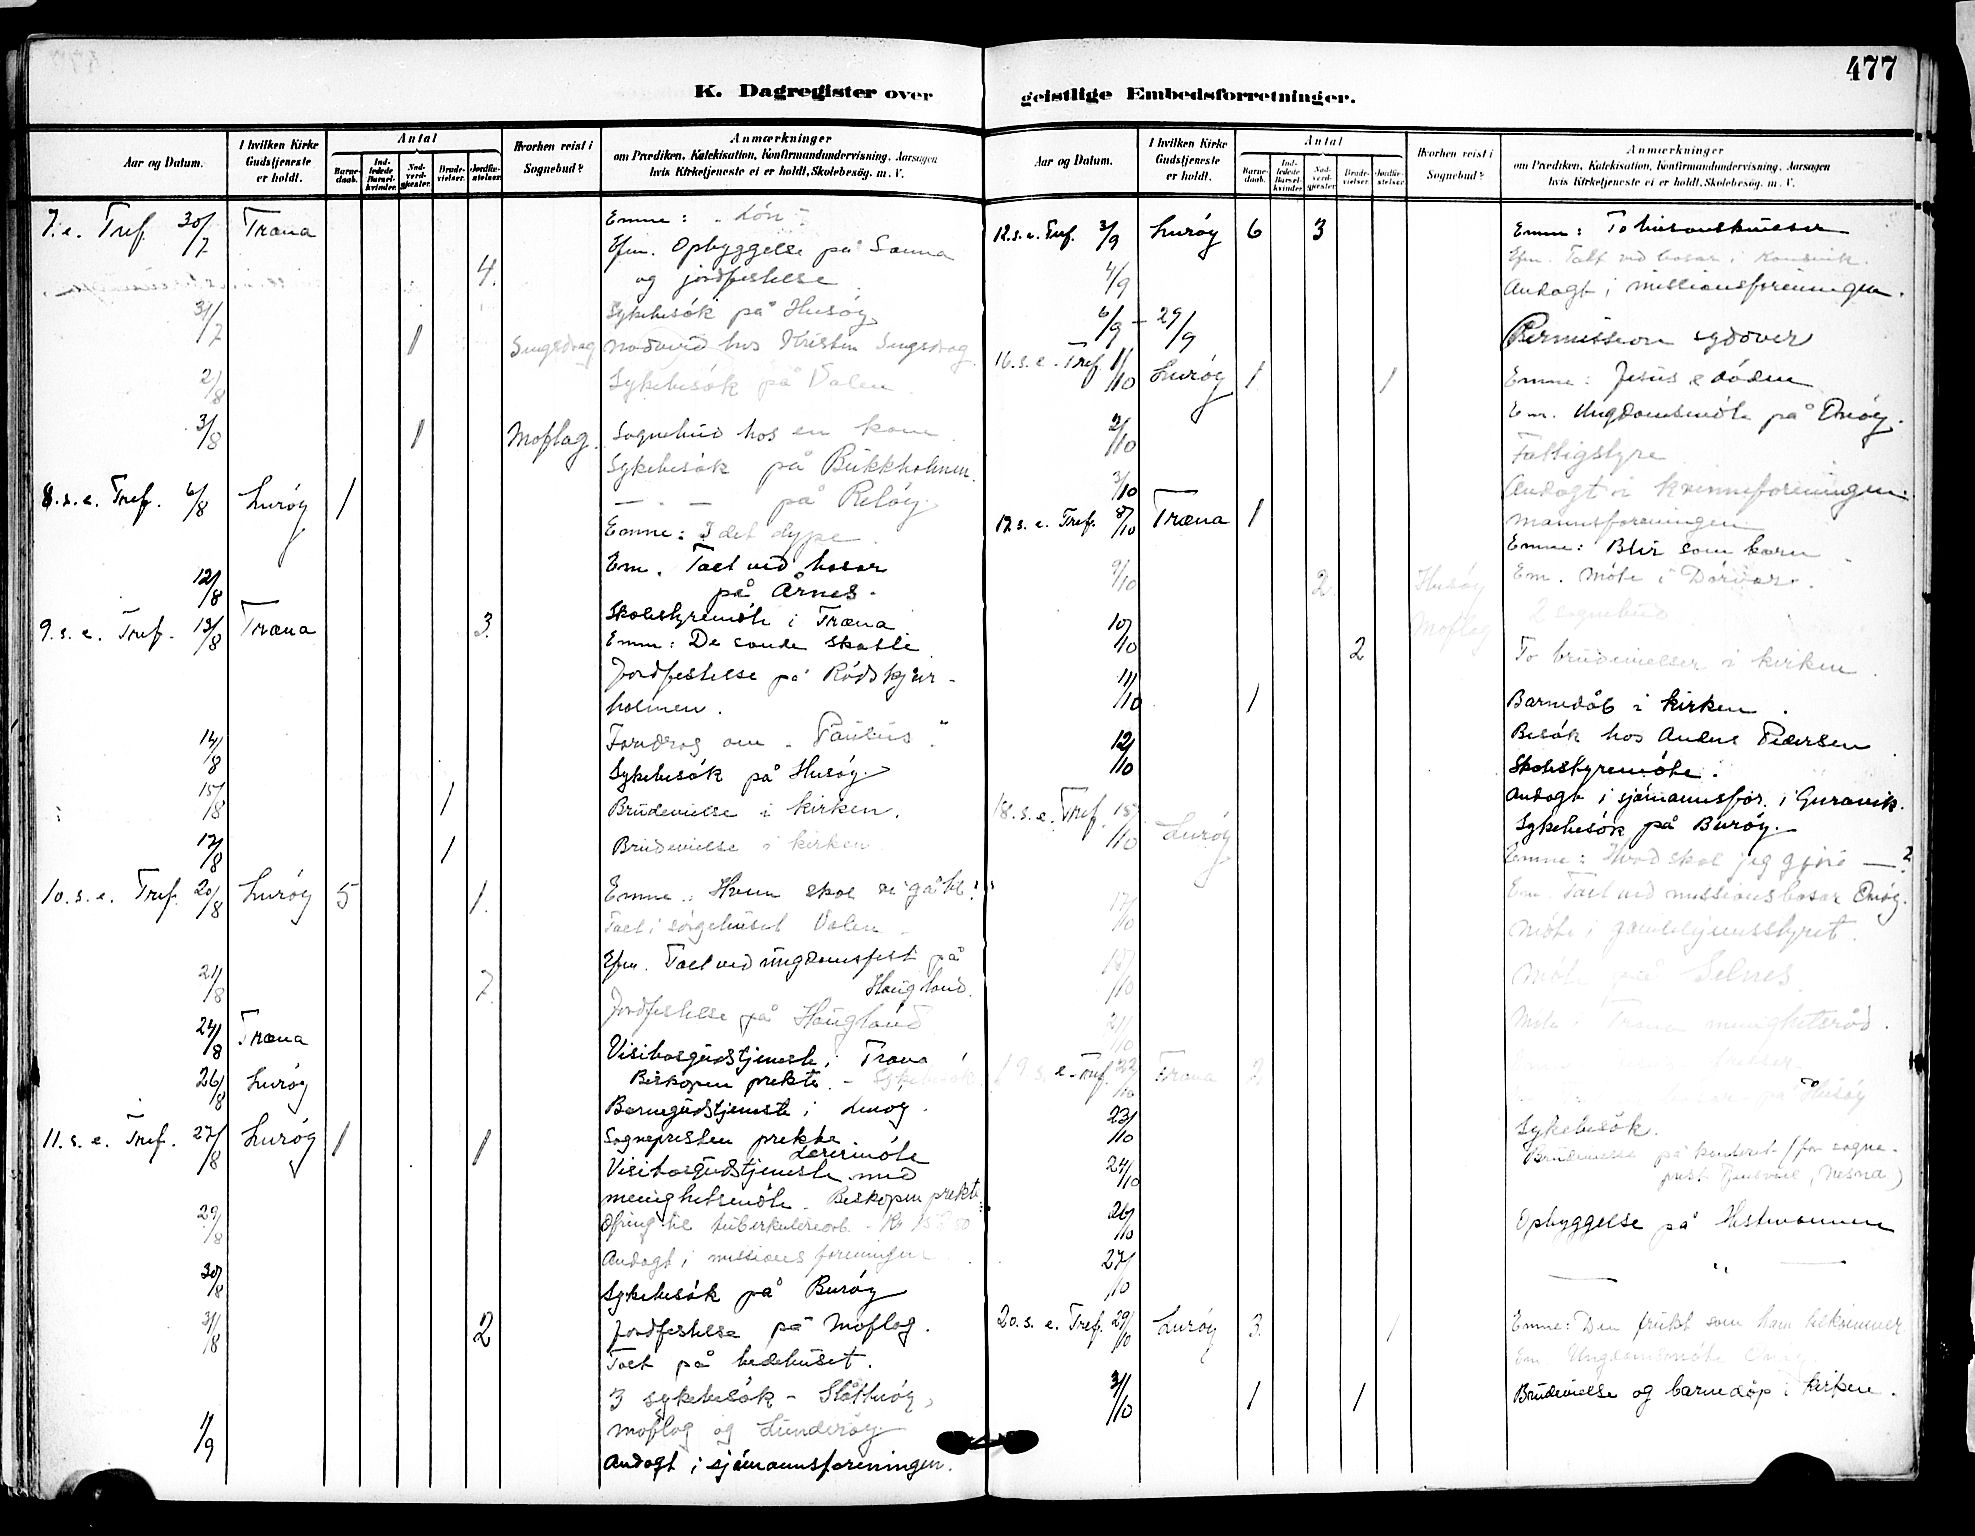 477
K. Dagregister over
Aar og Datum.
I hvilken Kirke Gudstjeneste er holdt.
Antal
Barnedaab.
Indledede Barselkvinder.
Nadverdgjester.
Brudevielser.
Jordfæstelser.
Hvorhen reist i Sognebud?
Anmærkninger
om Prædiken, Katekisation, Konfirmandundervisning, Aarsagen
hvis Kirketjeneste ei er holdt, Skolebesøg, m. V.
7. e. Tref. 30/7 Træna Emne: "Lón"
Efm. Opbyggelse på Sanna
4. og jordfestelse
31/7 Sykebesök på Husöy
1 nadverd hos Kristen
2/8 Sykebesök på Valen
3/8 1 Moflag. Sognebud hos en kone
Sykebesök på Bukkholmen.
— " — på Relöy.
8. s. e. Tref. 6/8 Luröy 1 Emne: I det dype.
Em. Tael ved basar
på Årnes.
12/8 Skolestyremöte i Træna
9. s. e. Tref. 13/8 Træna 3. Emne: De sande skatte
Jordfestelse på Rödskjær-
holmen.
14/8 Foredrag om "Paulus".
Sykebesök på Husöy.
15/8 1 Brudevielse i kirken.
17/8 1 Brudevielse i kirken
10. s. e. Tref. 20/8 Luröy 5 1. Emne: Hvem skal vi gå til?
Tael i sörgehuset Valen.
Efm. Tael ved ungdomsfest på
Haugland.
21/8 7. Jordfestelse på Haugland
24/8 Træna Visitasgudstjeneste i Træna
Biskopen prekte. - Sykebesök
26/8 Luröy Barnegudstjeneste i Luröy.
Sognepresten prekte.
Lærermöte
11. s. e. Tref. 27/8 Luröy 1 1 Visitasgudstjeneste med
menighetsmöte. Biskopen prekte.
Ofring til tuberkulosearb.
29/8 Andagt i missionsforeningen
30/8 Sykebesök på Buröy
31/8 2 Jordfestelse på Moflag.
Tael på bedehuset.
3 sykebesök - Slåttöy,
Moflag og Sunderöy
1/9 Andagt i sjömannsforeningen.
geistlige Embedsforretninger.
Aar og Datum.
I hvilken Kirke Gudstjeneste er holdt.
Antal
Barnedaab.
Indledede Barselkvinder.
Nadverdgjester.
Brudevielser.
Jordfæstelser.
Hvorhen reist i Sognebud?
Anmærkninger
om Prædiken, Katekisation, Konfirmandundervisning, Aarsagen
hvis Kirketjeneste ei er holdt, Skolebesøg, m. V.
12. s. e. Tref. 3/9 Luröy 6 3 Emne: To livsanskuelser
Efm. Talt ved basar i Konsvik.
4/9 Andagt i missionsforeningen.
6/9 - 29/9 Permission sydover
16. s. e. Tref. 1/10 Luröy 1 1 Emne: Jesus & döden
Em. Ungdomsmöte på Onöy.
2/10 Fattigstyre
3/10 Andagt i kvinneforeningen.
mannsforeningen
17. s. e. Tref. 8/10 Træna 1 Emne: Blir som barn
Em. Möte i Dörvær.
9/10 2. Husöy 2 sognebud
Moflag
10/10 2 To brudevielser i kirken
11/10 1 Barnedåb i kirken.
Besök hos Anders Pedersen
12/10 Skolestyremöte.
Andagt i sjömannsfor. i Guravik.
Sykebesök på Buröy.
18. s. e. Tref. 15/10 Luröy Emne: Hvad skal jeg gjöre — ?
Em. Tael ved missionsbasar Onöy.
17/10 Möte i gamlehjemsstyret.
18/10 Möte på Selnes.
21/10 Möte i Træna menighetsråd.
19. s. e. Tref. 22/10 Træna 2
basar på Husöy
23/10 Sykebesök.
24/10 Brudevielse på kontoret (for sogne-
prest, Nesna)
26/10 Opbyggelse på Hestmannen
27/10 — " —
20. s. e. Tref. 29/10 Luröy 3. 1 Emne: Den frukt som ham tilkommer
Em. Ungdomsmöte Onöy.
31/10 1 1 Brudevielse og barnedåp i kirken.